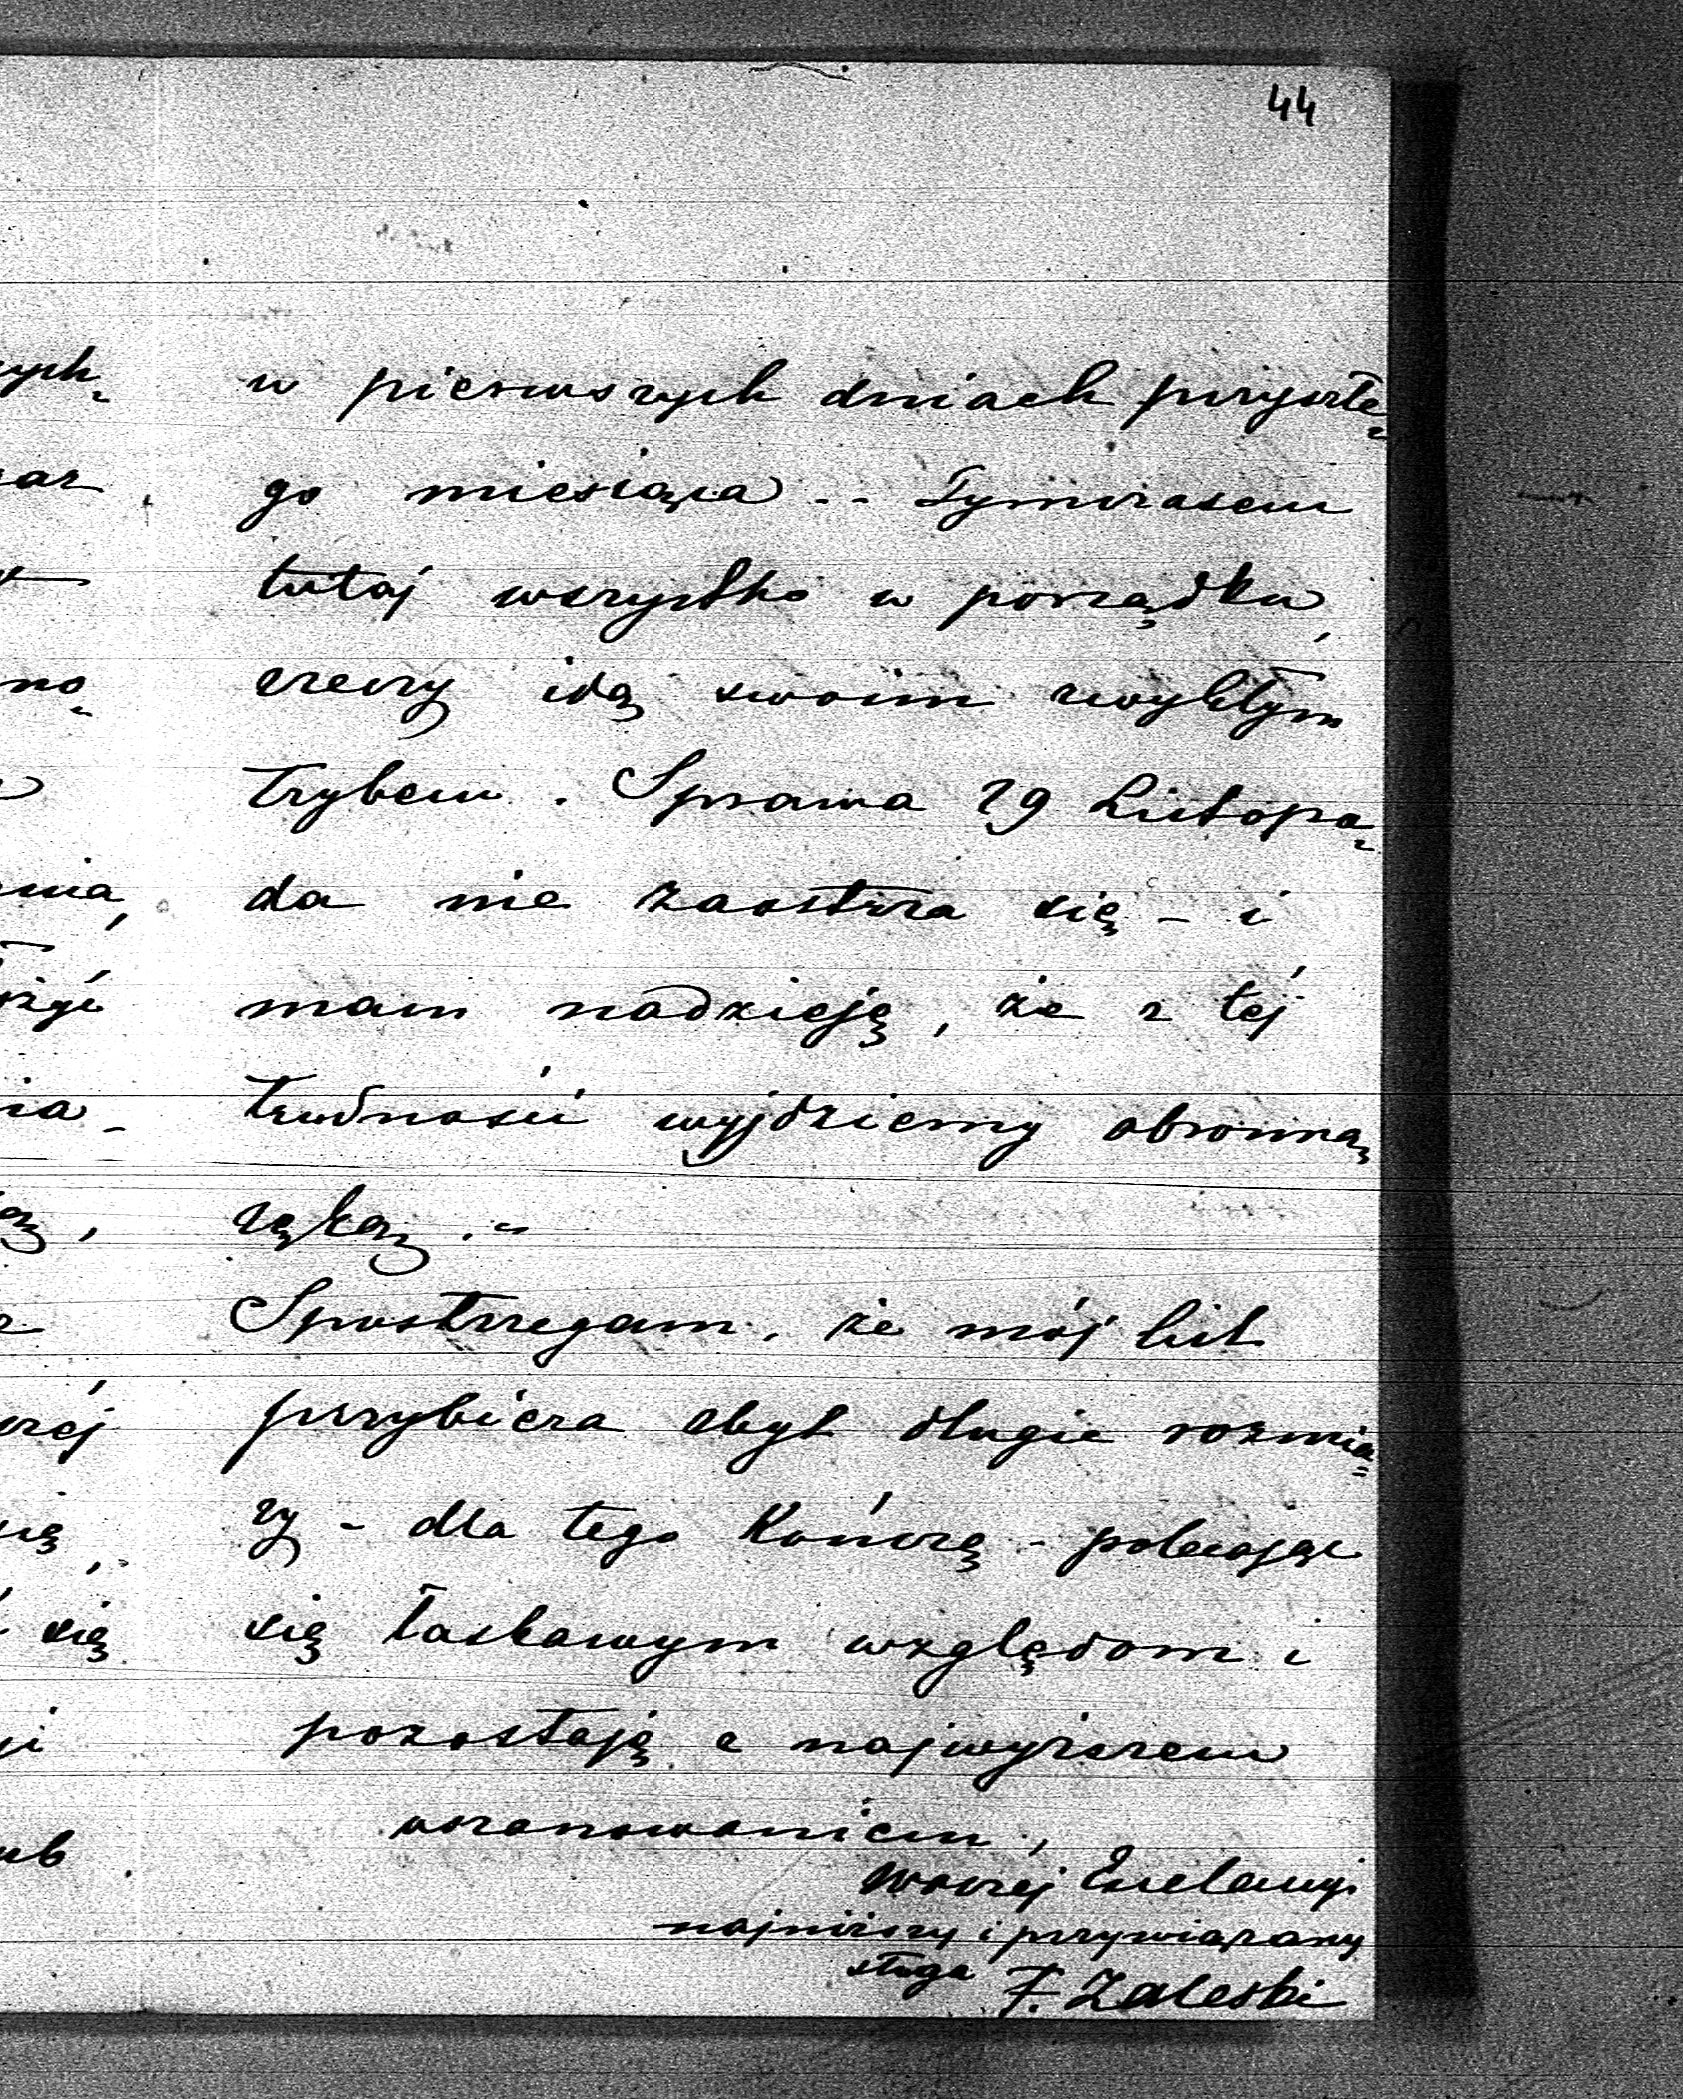 44
w pierwszych dniach przyszłe-
go miesiąca -- Tymczasem
tutaj wszystko w porządku,
rzeczy idą swoim zwykłym
trybem. Sprawa 29 Listopa-
da nie zaostrza się - i
mam nadzieję, że z tej
trudności wyjdziemy obronną
ręką. -
Spostrzegam, że mój list
przybiera zbyt długie rozmia=
ry - dla tego kończę - polecając
się łaskawym względom i
pozostaję z najwyższem
uszanowaniem,
Waszej Excelencyi
najniższy i przywiązany
sługa F. Zaleski